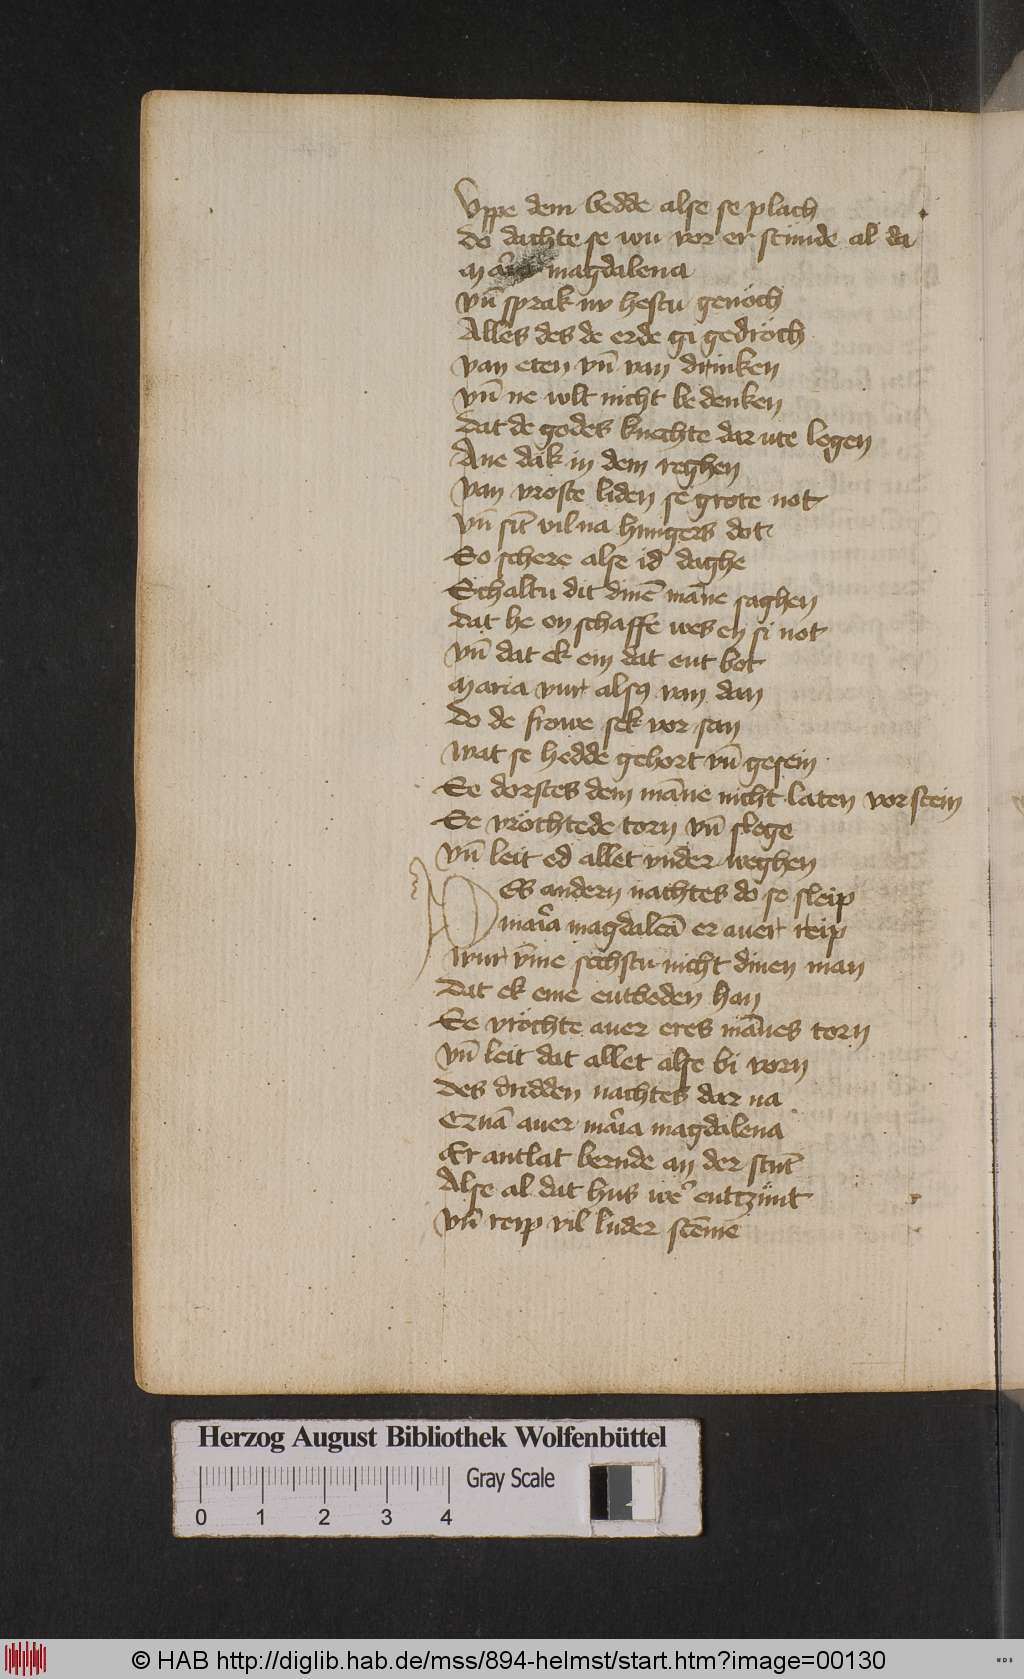 Vppe dem bedde alse se plach
do dachte se wu vor er stunde al da
Mar̂ia magdalena
vn̄ sprak nv hestu genoͤch
Alles des de erde gi gedroͤch
van eten vn̄ van drinken
vn̄ ne wlt nicht bedenken
dat de godes knechte dar ute legen
Ane dak in dem reghen
van vroste liden se grote not
vn̄ sīt vil na hungers dot
So schere alse id daghe
Schaltu dit dinē māne saghen
dat he on schaffe wes en si not
vn̄ dat ek em dat ent bot
Maria vur alsꝰ van dan
do de frowe sek vor san
wat se hedde gehort vn̄ gesein
Se dorstes dem māne nicht laten vorstein
Se vroͤchtede torn vn̄ slege
vn̄ leit ed allet vnder weghen
Des andern nachtes do se sleip
mar̂ia magdalēa er auer reip
wur v̄me sechstu nicht dinen man
dat ek eme entboden han
Se vroͤchte auer eres mānes torn
vn̄ leit dat allet alse bi vorn
des dridden nachtes dar na
Quā auer mar̂ia magdalena
Er antlat bernde an der stūt
Alse al dat hus we͛ entzunt
vn̄ reip vil luder stēme
Herzog August Bibliothek Wolfenbüttel
Gray Scale
0 1 2 3 4
© HAB http://diglib.hab.de/mss/894-helmst/start.htm?image=00130